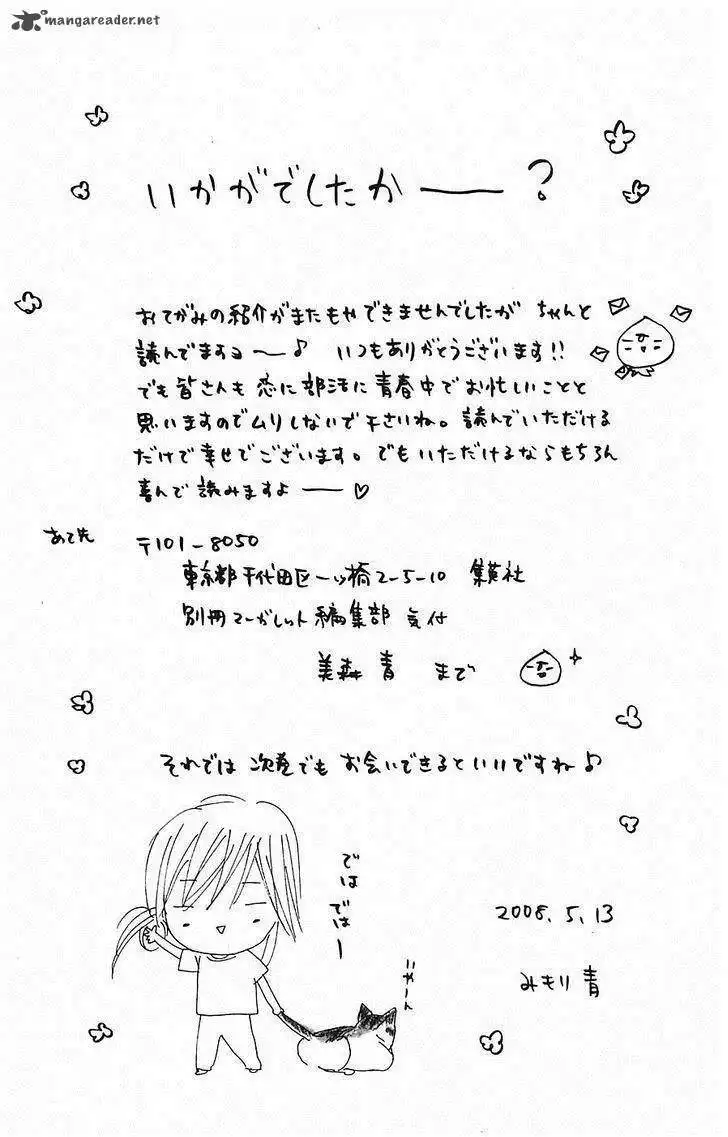 mangareader.net
いかがでしたか――?
おてがみの紹介がまたもやできませんでしたが ちゃんと
読んでますヨ〜♪ いつもありがとうございます!!
でも皆さんも 恋に部活に青春中でお忙しいことと
思いますのでムリしないで下さいね。読んでいただける
だけで幸せでございます。でもいただけるならもちろん
喜んで読みますよ――♡
あて先
〒101-8050
東京都千代田区一ツ橋2-5-10 集英社
別冊マーガレット編集部 気付
美森 青 まで
それでは 次巻でも お会いできるといいですね♪
では
では―
いやーん
2008.5.13
みもり 青